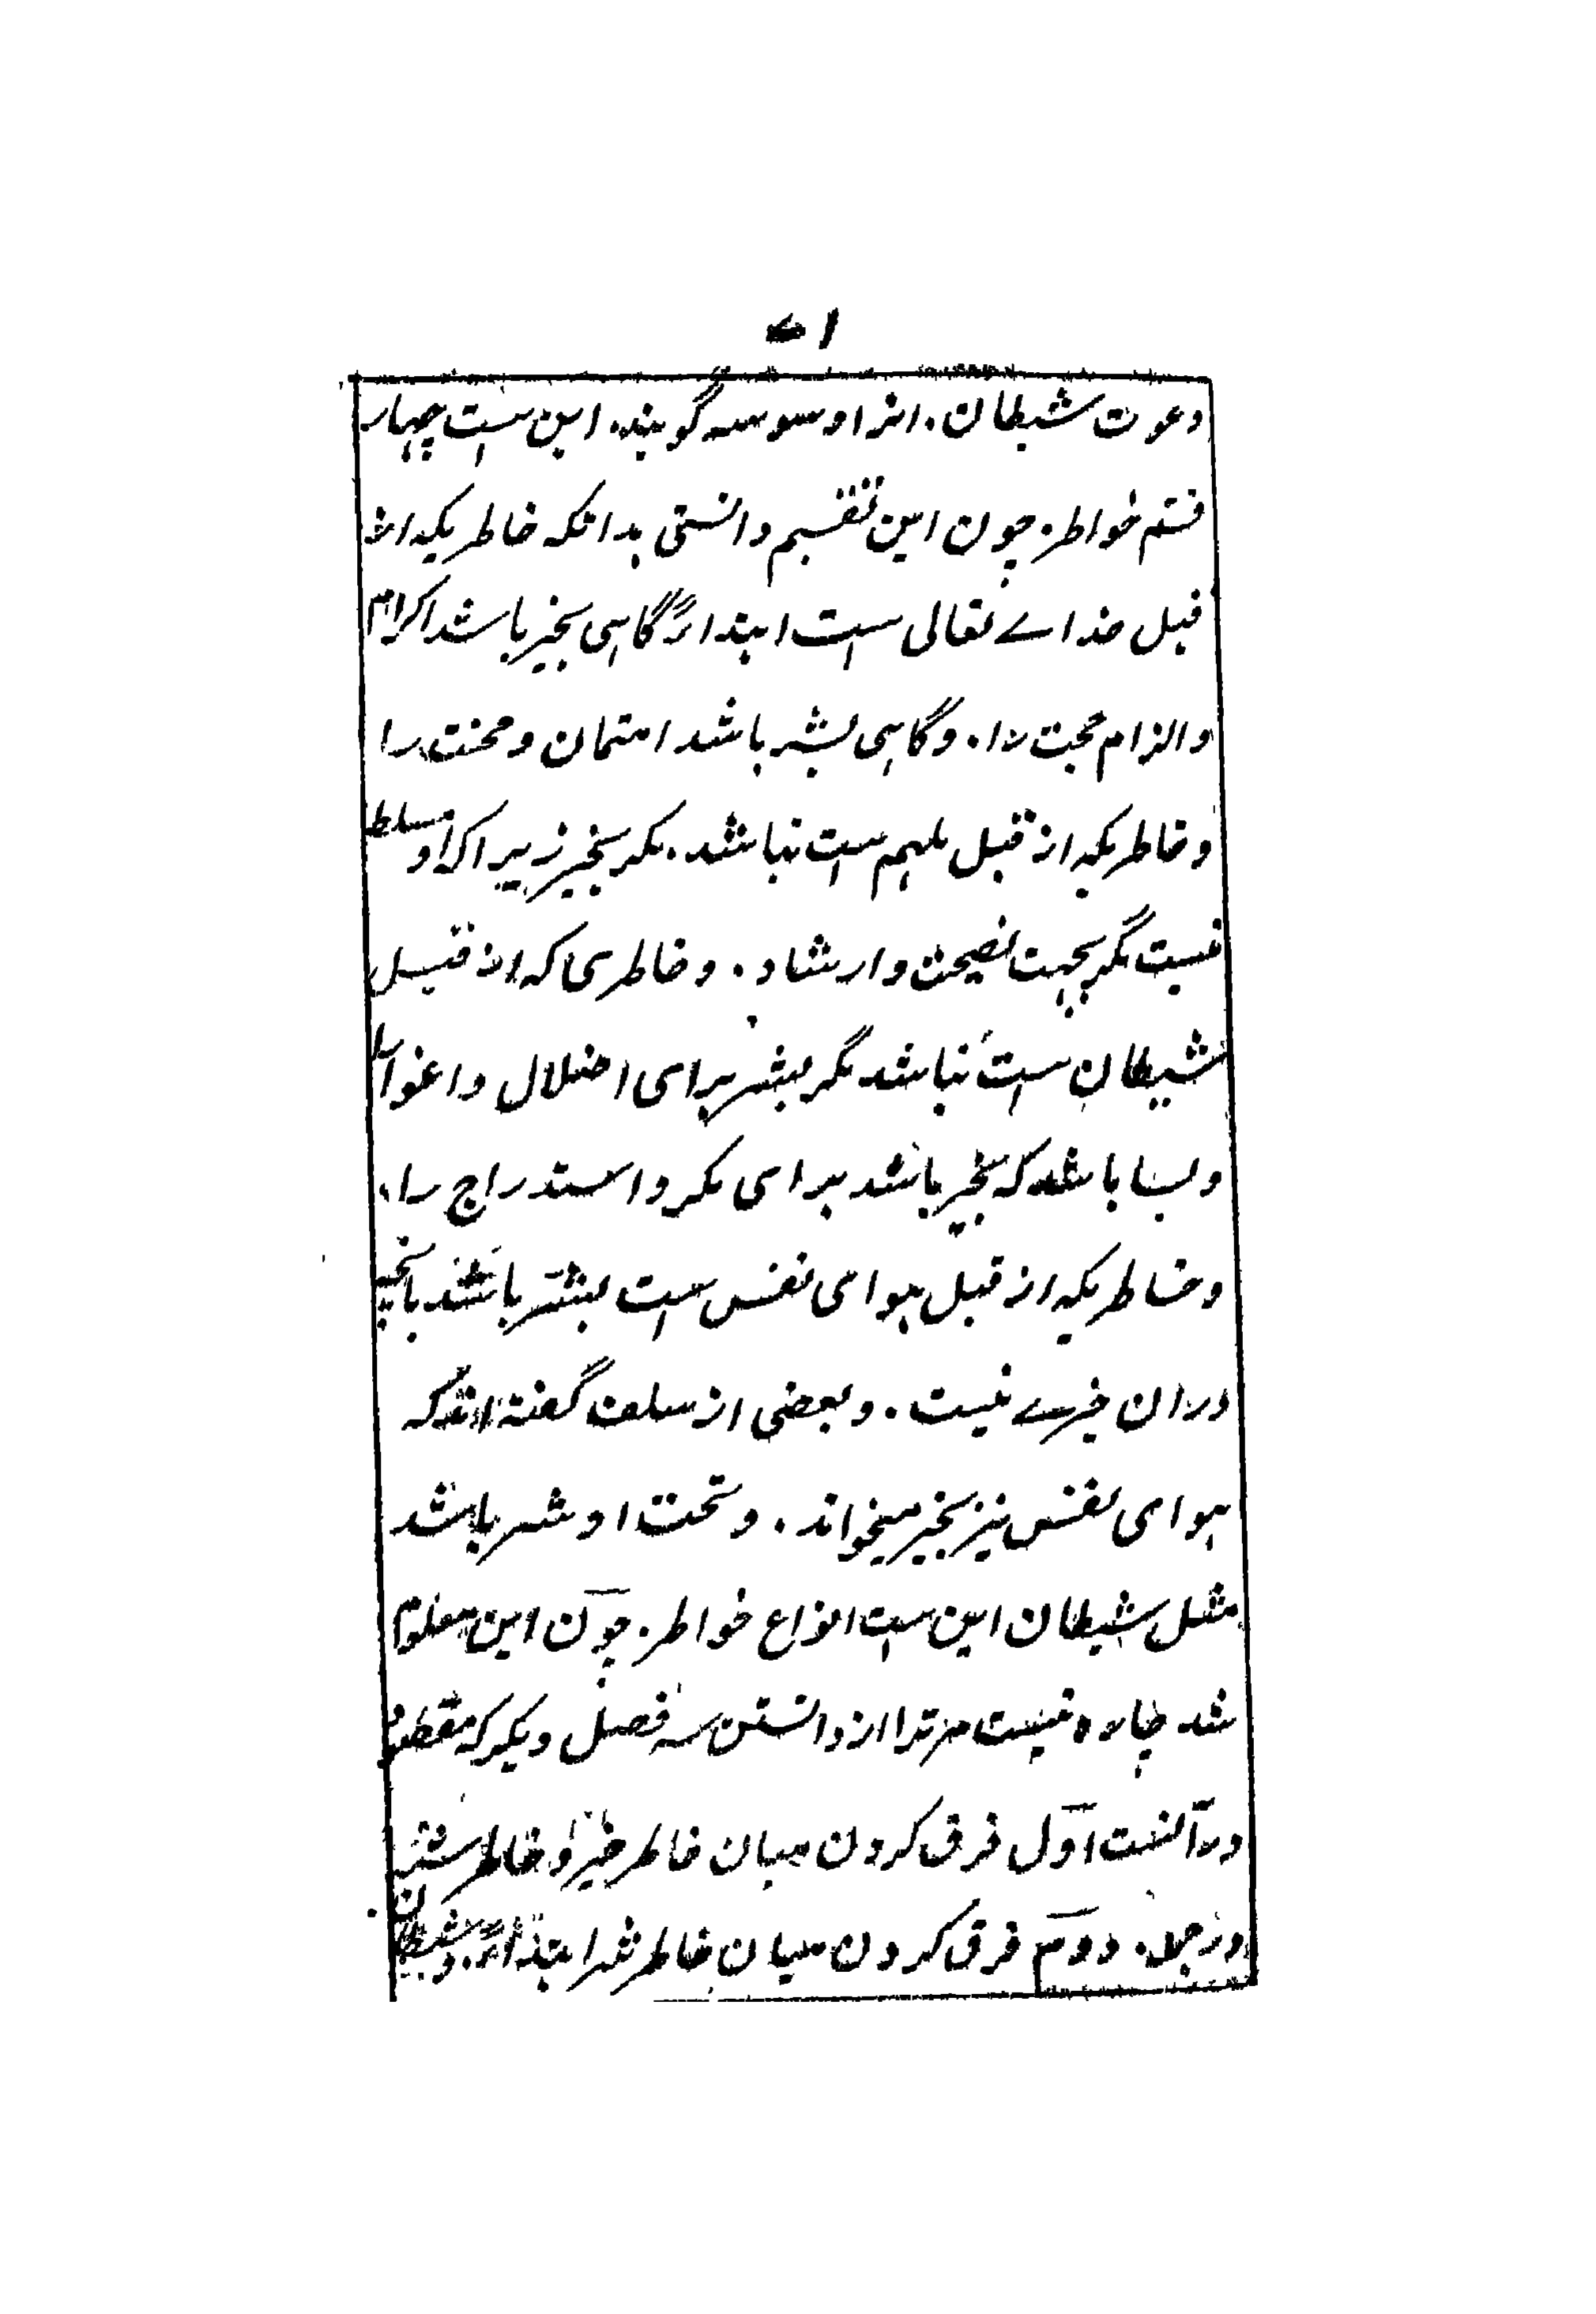 دعوت شیطان. انرا وسوسه گویند. این ست چهار
قسم خواطر. چون این تقسیم دانستی بدانکه خاطریکه از
قبل خداے تعالی ست ابتداءً گاہی بخیر باشد اکرام
والزام حجت را. وگاہی بشر باشد امتحان ومحنت را
وخاطریکه از قبل ملهم ست نباشد. مگر بخیر زیراکه او مسلط
نیست مگر بجهت نصیحت وارشاد. وخاطری که از قبل
شیطان ست نباشد مگر بشر برای اضلال واغوا را
وبسا باشد که بخیر باشد برای مکر واستدراج را.
وخاطریکه از قبل ہوای نفس ست بشر باشد یا بخیر
دران خیرے نیست. وبعضی از سلف گفته اند که
ہوای نفس نیز بخیر میخواند. وتحت او شر باشد
مثل شیطان این ست انواع خواطر. چون این معلوم
شد چاره نیست مر ترا از دانستن سه فصل دیگر که مقصود
درآنست اوّل فرق کردن میان خاطر خیر وخاطر شر
در جمله. دوم فرق کردن میان خاطر شر ابتداءً وشیطان